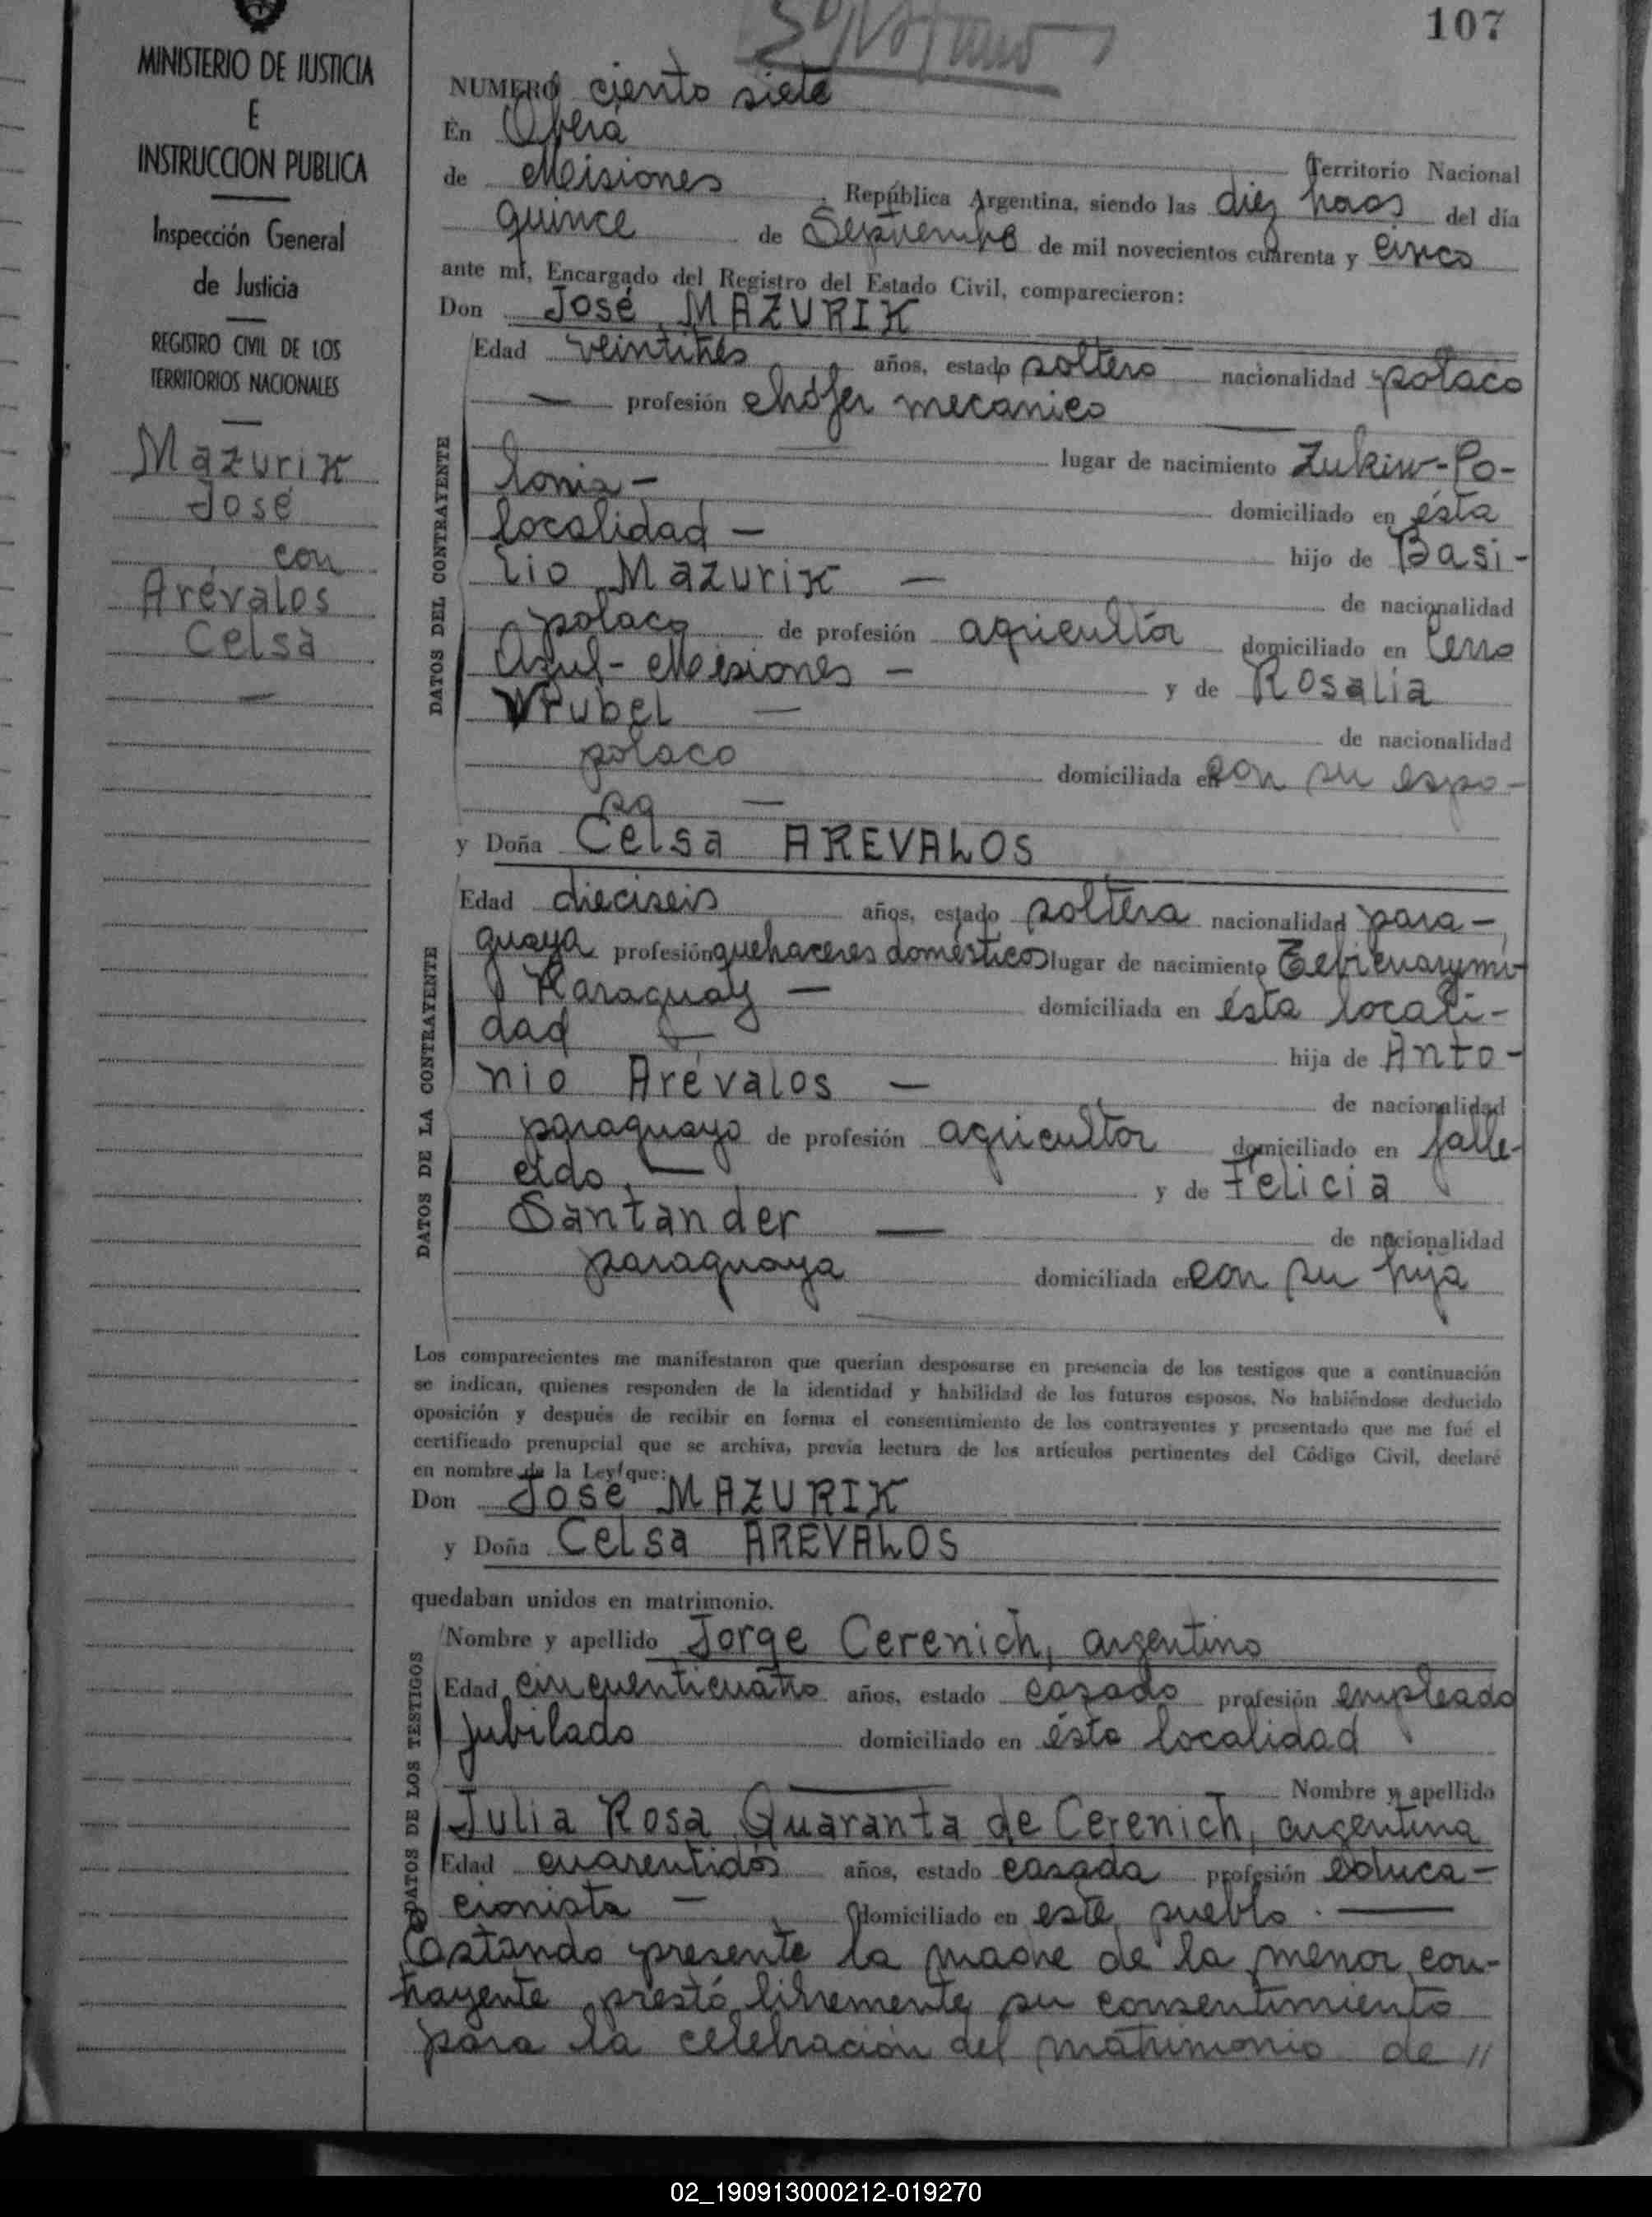 107
MINISTERIO DE JUSTICIA
E
INSTRUCCION PUBLICA
Inspección General
de Justicia
REGISTRO CIVIL DE LOS
TERRITORIOS NACIONALES
Mazurik
José
con
Arévalos
Celsa
NUMERO ciento siete
En Oberá Territorio Nacional
de Misiones República Argentina, siendo las diez horas del día
quince de Septiembre de mil novecientos cuarenta y cinco
ante mí, Encargado del Registro del Estado Civil, comparecieron:
Don José MAZURIK
DATOS DEL CONTRAYENTE
Edad veintitrés años, estado soltero nacionalidad polaco
— profesión chófer mecanico
lugar de nacimiento Zukiw-Po-
lonia - domiciliado en ésta
localidad - hijo de Basi-
lio Mazurik — de nacionalidad
polaco de profesión agricultor domiciliado en Cerro
Azul - Misiones - y de Rosalia
Wrubel — de nacionalidad
polaco domiciliada en con su espo-
so —
y Doña Celsa AREVALOS
DATOS DE LA CONTRAYENTE
Edad dieciseis años, estado soltera nacionalidad para-
guaya profesión quehaceres domésticos lugar de nacimiento
Paraguay — domiciliada en ésta locali-
dad — hija de Anto-
nio Arévalos — de nacionalidad
paraguayo de profesión agricultor domiciliado en falle-
cido. — y de Felicia
Santander — de nacionalidad
paraguaya domiciliada en con su hija
Los comparecientes me manifestaron que querían desposarse en presencia de los testigos que a continuación
se indican, quienes responden de la identidad y habilidad de los futuros esposos. No habiéndose deducido
oposición y después de recibir en forma el consentimiento de los contrayentes y presentado que me fué el
certificado prenupcial que se archiva, previa lectura de los artículos pertinentes del Código Civil, declaré
en nombre de la Ley que:
Don José MAZURIK
y Doña Celsa AREVALOS
quedaban unidos en matrimonio.
DATOS DE LOS TESTIGOS
Nombre y apellido Jorge Cerenich, argentino
Edad cincuenticuatro años, estado casado profesión empleado
jubilado domiciliado en ésta localidad
Nombre y apellido
Julia Rosa Quaranta de Cerenich, argentina
Edad cuarentidós años, estado casada profesión educa-
cionista — domiciliado en este pueblo. —
Estando presente la madre de la menor con-
trayente prestó libremente su consentimiento
para la celebración del matrimonio de //
02_190913000212-019270